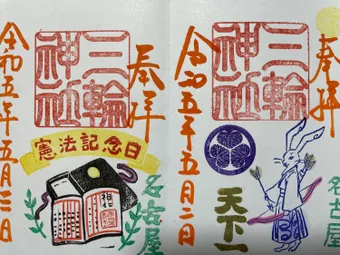 奉拝
三輪
神社
令和五年五月二日
天下一
名古屋
奉拝
三輪
神社
令和五年五月三日
憲法記念日
名古屋